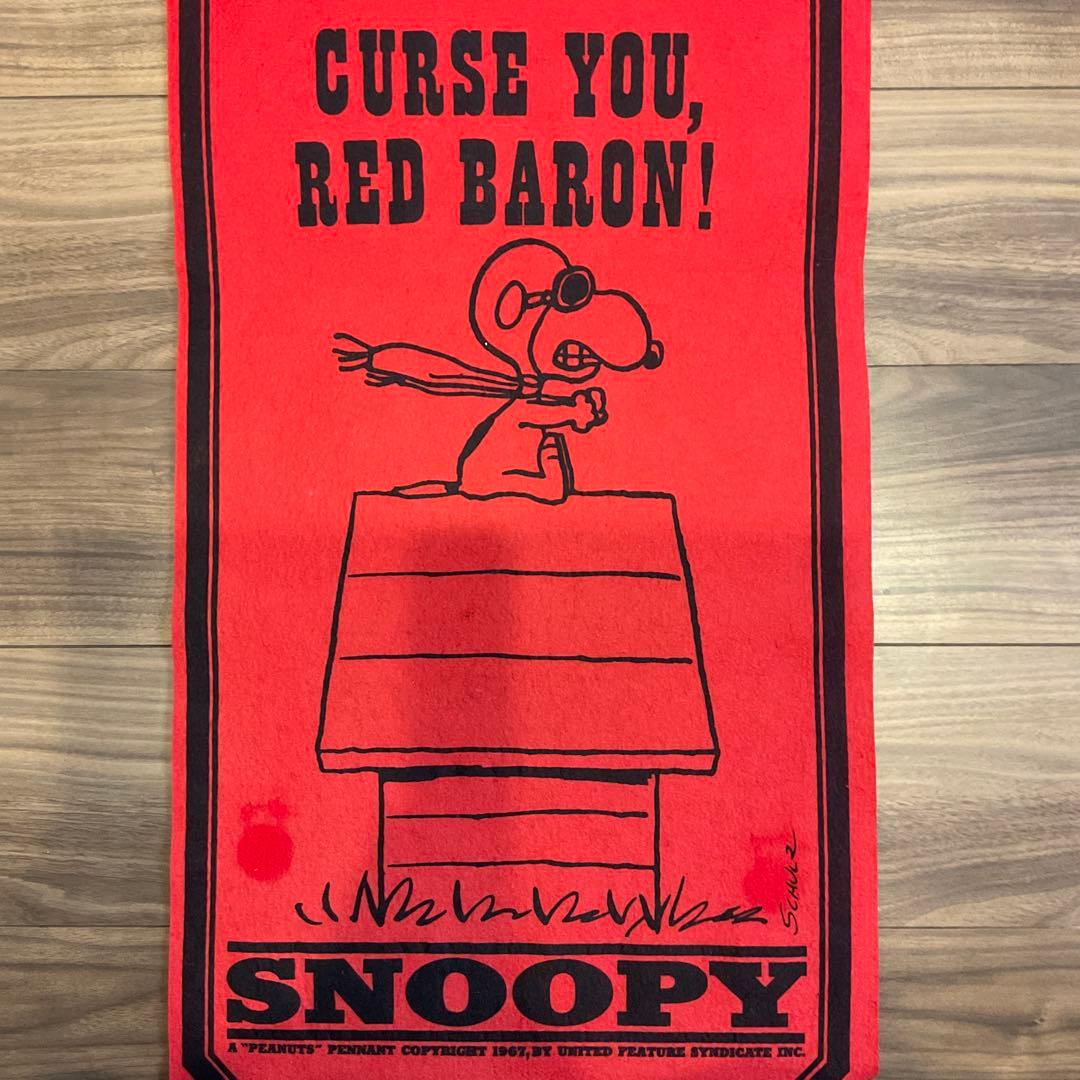 CURSE YOU,
RED BARON!
SCHULZ
SNOOPY
A "PEANUTS" PENNANT COPYRIGHT 1967, BY UNITED FEATURE SYNDICATE INC.